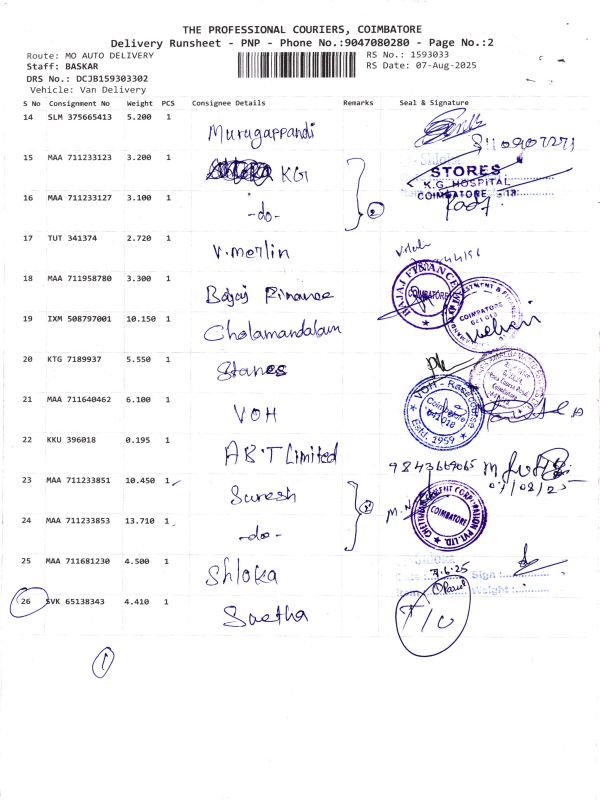 THE PROFESSIONAL COURIERS, COIMBATORE
Delivery Runsheet - PNP - Phone No.:9047080280 - Page No.:2
Route: MO AUTO DELIVERY RS No.: 1593033
Staff: BASKAR RS Date: 07-Aug-2025
DRS No.: DCJB159303302
Vehicle: Van Delivery
S No Consignment No Weight PCS Consignee Details Remarks Seal & Signature
14 SLM 375665413 5.200 1 Murugappandi
15 MAA 711233123 3.200 1 KG
STORES
K.G. HOSPITAL
COIMBATORE
16 MAA 711233127 3.100 1 -do-
17 TUT 341374 2.720 1 V.merlin
18 MAA 711958780 3.300 1 Bajaj Finance
BAJAJ FINANCE COIMBATORE
19 IXM 508797001 10.150 1 Cholamandalam
COIMBATORE
20 KTG 7189937 5.550 1 Stanes
21 MAA 711640462 6.100 1 VOH
VOH - Racecourse Coimbatore 641018 Estd. 1959
22 KKU 396018 0.195 1 ABT Limited
9843669065
07/08/25
23 MAA 711233851 10.450 1 Suresh
M.N
COIMBATORE
24 MAA 711233853 13.710 1 -do-
25 MAA 711681230 4.500 1 Shloka
Sign :
26 SVK 65138343 4.410 1 Saetha
T/O
1